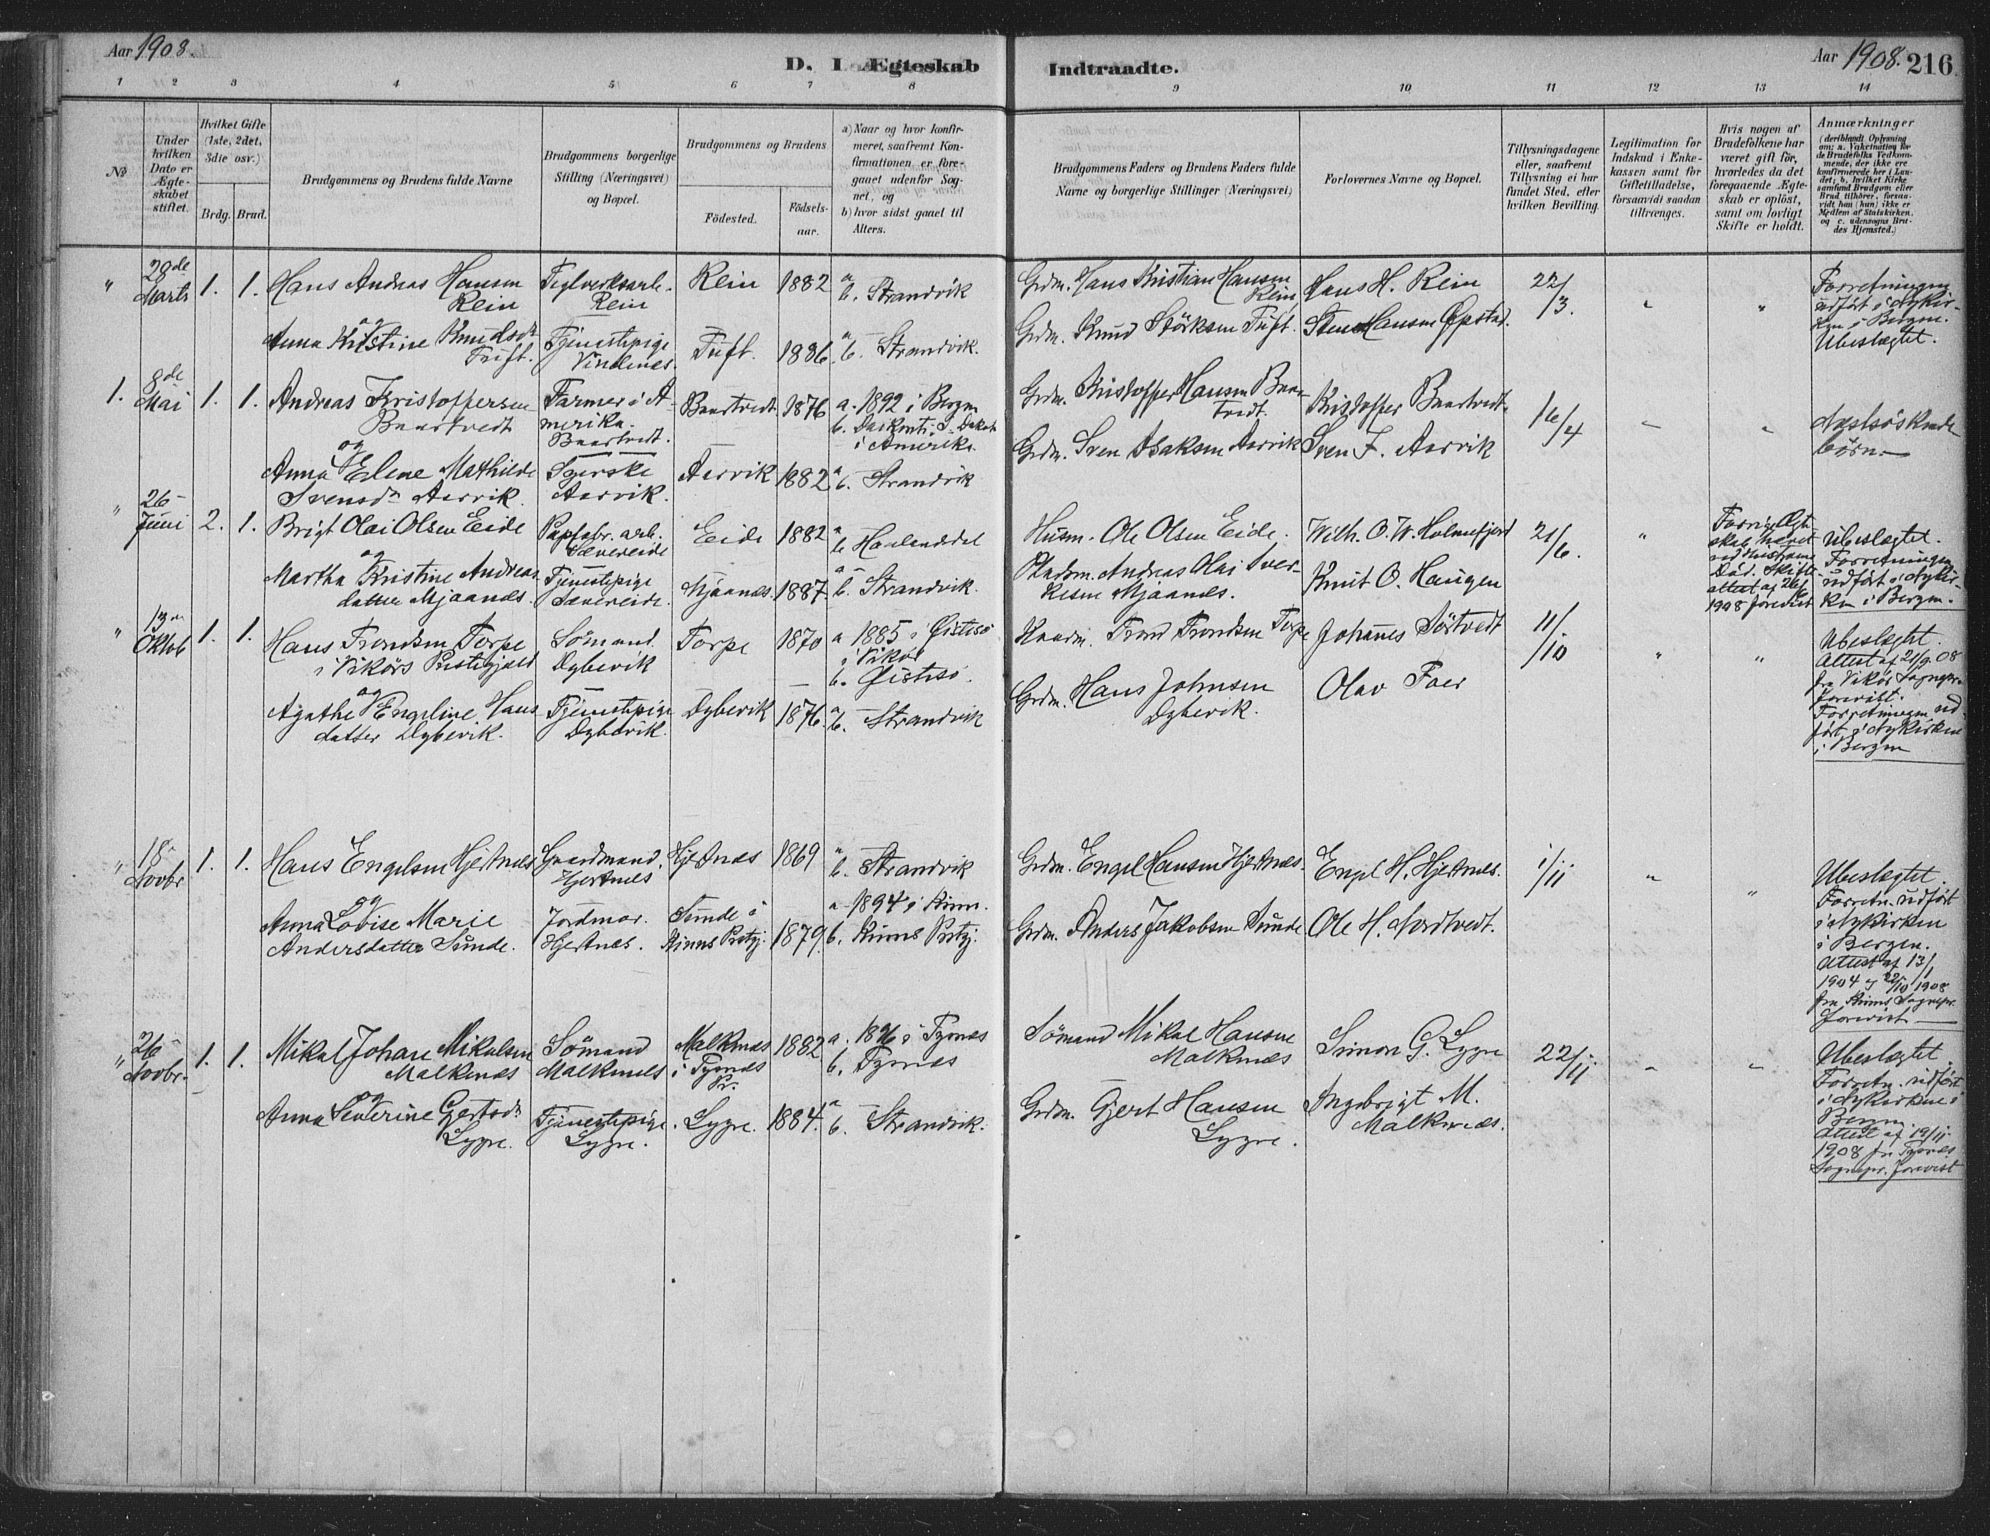 Aar 1908.
D. I Ægteskab Indtraadte.
Aar 1908. 216
1 2 3 4 5 6 7 8 9 10 11 12 13 14
No
Under hvilken Dato er Ægteskabet stiftet.
Hvilket Gifte (1ste, 2det, 3die osv.)
Brdg. Brud.
Brudgommens og Brudens fulde Navne
Brudgommens borgerlige Stilling (Næringsvei) og Bopæl.
Brudgommens og Brudens
Födested.
Födsels-aar.
a) Naar og hvor konfirmeret, saafremt Konfirmationen er foregaaet udenfor Sognet, og
b) hvor sidst gaaet til Alters.
Brudgommens Faders og Brudens Faders fulde Navne og borgerlige Stillinger (Næringsvei)
Forlovernes Navne og Bopæl.
Tillysningsdagene eller, saafremt Tillysning ei har fundet Sted, efter hvilken Bevilling.
Legitimation for Indskud i Enkekassen samt for Giftetilladelse, forsaavidt saadan tiltrænges.
Hvis nogen af Brudefolkene har været gift för, hvorledes da det foregaaende Ægteskab er oplöst, samt om lovligt Skifte er holdt.
Anmærkninger
(deriblandt Oplysning om; a. Vakcination for de Brudefolks Vedkommende, der ikke ere konfirmerede her i Landet; b. hvilket Kirkesamfund Brudgom eller Brud tilhörer, forsaavidt han (hun) ikke er Medlem af Statskirken, og c. udensogns Brudes Hjemsted.)
" 28de Marts 1. 1. Hans Andreas Hansen Rein
Teglverksarb. Rein
Rein 1882 a b. Strandvik
Grdm. Hans Kristian Hansen Rein
Hans H. Rein
22/3. " "
Forretningen udført i Nykirken i Bergen. Ubeslægtet.
og
Anna Kristine Knudsdr Tuft.
Tjenestepige Vindenes.
Tuft. 1886. a b. Strandvik.
Grdm. Knud Störksen Tuft.
Sten Hansen Øpstad.
1. 8de Mai 1. 1. Andreas Kristoffersen Baartvedt
Farmer i Amerika. Baartvedt.
Baartvedt 1876 a. 1892 i Bergen
b. S. Dakota i Amerika.
Grdm. Kristoffer Hansen Baartvedt.
Kristoffer Baartvedt.
16/4 " "
Næstsöskendebörn.
og
Anna Elene Mathilde Svensdr Aarvik.
Syerske Aarvik.
Aarvik 1882 a b. Strandvik
Grdm. Sven Isaksen Aarvik
Sven F. Aarvik
" 26 Juni 2. 1. Brigt Olai Olsen Eide
Papfabr. arb. Sævereide
Eide 1882 a b Haalanddal
Husm. Ole Olsen Eide.
Wilh. O. W. Holmefjord
21/6. "
Forrige Ægteskab hævet ved Hustruens Död. Skifteattest af 26/6 1908 forevist
Ubeslægtet. Forretningen udført i Nykirken i Bergen.
og
Martha Kristine Andreasdatter Mjaanes.
Tjenestepige Sævereide.
Mjaanes. 1887 a b. Strandvik.
Pladsm. Andreas Olai Sverkesen Mjaanes.
Knut O. Haugen
" Oktob 1. 1. Hans Trondsen Torpe i Vikörs Prestegjeld
Sömand. Dybevik
Torpe 1870 a 1885 i Östesö i Vikör
b. Östesö.
Trond Trondsen Torpe
Johannes Törtvedt
11/10 " "
Ubeslægtet. Attest af 21/9 08 fra Vikör Sognepr. forevist. Forretningen udfört i Nykirken i Bergen
og
Agathe Engeline Hansdatter Dybevik.
Tjenestepige Dybevik.
Dybevik 1876. a b. Strandvik
Grdm. Hans Johnsen Dybevik.
Olav Faer
" 18 Novbr 1. 1. Hans Engelsen Hjertnes
Gaardmand. Hjertnes
Hjertnes 1869 a b. Strandvik
Grdm. Engel Hansen Hjertnes.
Engel H. Hjertnes.
1/11 " "
Ubeslægtet. Forretn. udfört i Nykirken i Bergen. Attest af 13/1 1904 og 22/10 1908 fra Kinns Sognepr. forevist
og
Anna Lovise Marie Andersdatter Sunde.
Jordmor. Hjertnes.
Sunde i Kinns Prstgj. 1879. a. 1894 i Kinn.
b. Kinns Prstgj.
Grdm. Anders Jakobsen Sunde
Ole H. Nordtvedt.
" 26 Novbr. 1. 1. Mikal Johan Mikalsen Malkenæs
Sömand Malkenes
Malkenæs i Tysnes Pr. 1882 a. 1896 i Tysnæs
b. Tysnæs
Sömand Mikal Hansen Malkenæs
Simon G. Lygre
22/11 " "
Ubeslægtet. Forretn. udfört i Nykirken i Bergen. Attest af 19/11 1908 fra Tysnæs Sognepr. forevist
og
Anna Severine Gjertsdr Lygre.
Tjenestepige. Lygre.
Lygre. 1884. a b. Strandvik.
Grdm. Gjert Hansen Lygre.
Ingebrigt M. Malkenæs.